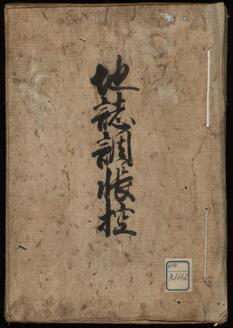 地誌調帳控